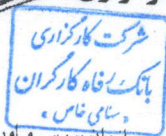 شرکت کارگزاری
بانک رفاه کارگران
« سهامی خاص »